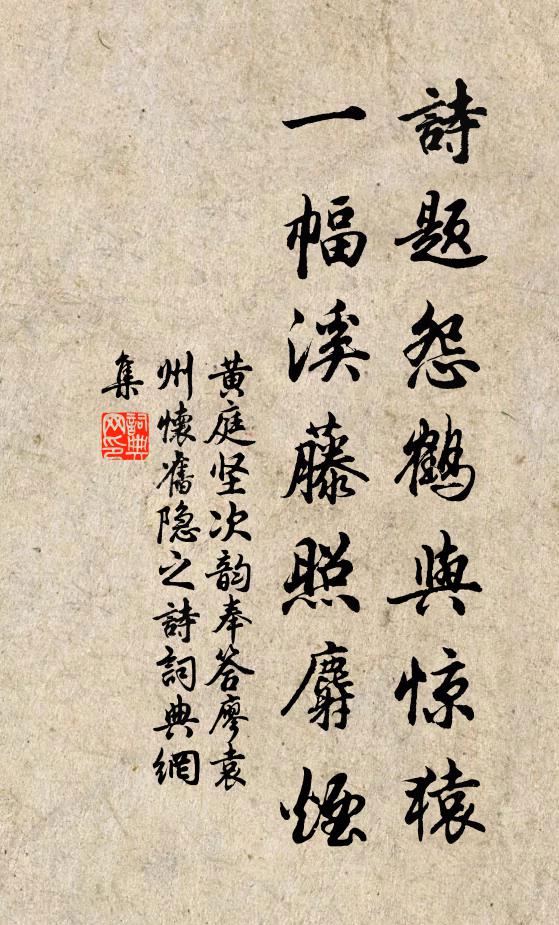 詩題怨鶴與惊猿
一幅溪藤照麝煙
黃庭坚次韵奉答廖袁
州懷舊隐之詩詞典網
集
詞典
网印